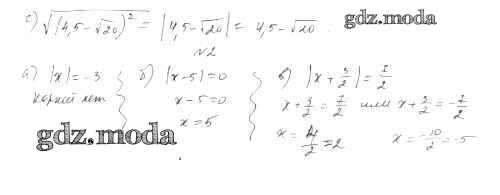 с) √(4,5-√20)² = |4,5-√20| = 4,5-√20.
gdz.moda
№2
а) |x| = -3
корней нет
б) |x-5| = 0
x-5=0
x=5
в) |x + 3/2| = 7/2
x + 3/2 = 7/2 или x + 3/2 = -7/2
x = 4/2 = 2 x = -10/2 = -5
gdz.moda